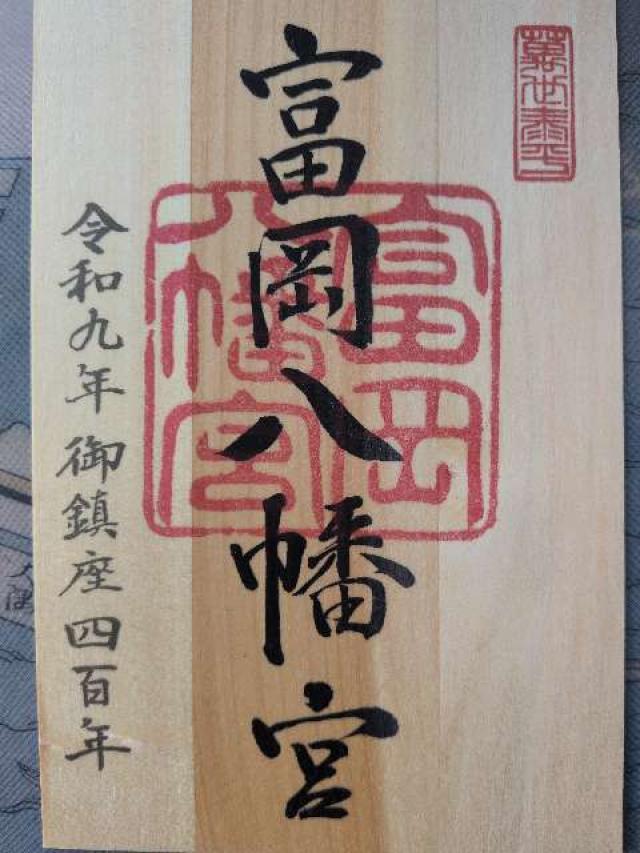 萬世泰平
富岡八幡宮
富岡八幡宮
令和九年 御鎮座四百年